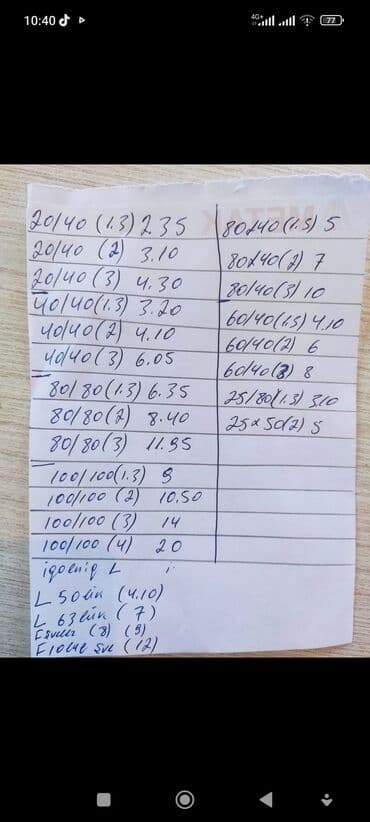 10:40
4G+
77
METAK
20/40 (1.3) 2.35
20/40 (2) 3.10
20/40 (3) 4.30
40/40 (1.3) 3.20
40/40 (2) 4.10
40/40 (3) 6.05
80/80 (1.3) 6.35
80/80 (2) 8.40
80/80 (3) 11.95
100/100 (1.3) 9
100/100 (2) 10.50
100/100 (3) 14
100/100 (4) 20
L
L 50 lik (4.10)
L 63 lük (7)
(8) (9)
(12)
80x40 (1.5) 5
80x40 (2) 7
80/40 (3) 10
60/40 (1.5) 4.10
60/40 (2) 6
60/40 (3) 8
25/80 (1.3) 3.10
25x50 (2) 5